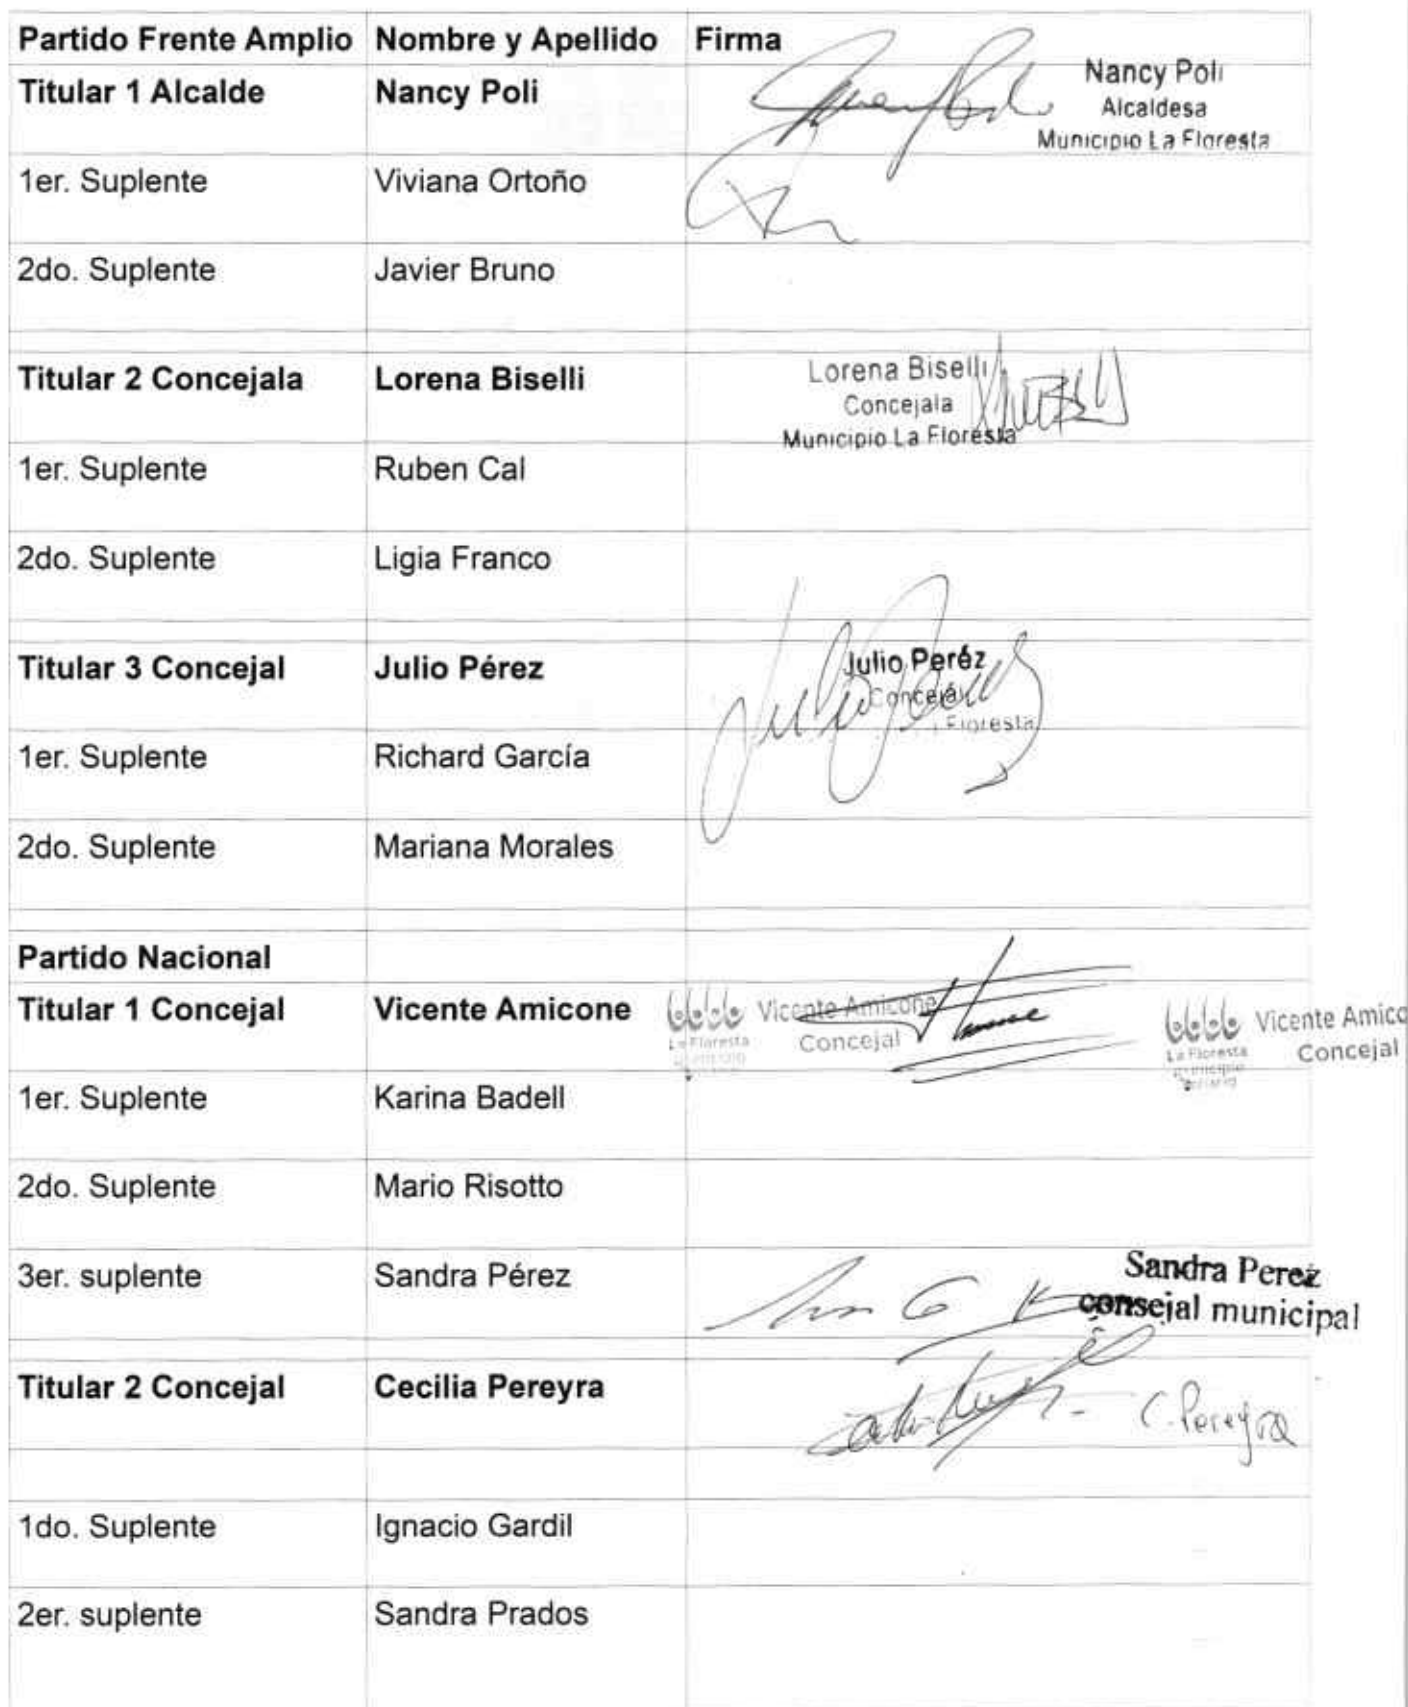 Partido Frente Amplio Nombre y Apellido Firma
Titular 1 Alcalde Nancy Poli
Nancy Poli
Alcaldesa
Municipio La Floresta
1er. Suplente Viviana Ortoño
2do. Suplente Javier Bruno
Titular 2 Concejala Lorena Biselli
Lorena Biselli
Concejala
Municipio La Floresta
1er. Suplente Ruben Cal
2do. Suplente Ligia Franco
Titular 3 Concejal Julio Pérez
Julio Peréz
Concejal
Floresta
1er. Suplente Richard García
2do. Suplente Mariana Morales
Partido Nacional
Titular 1 Concejal Vicente Amicone
Vicente Amicone
Concejal
La Floresta
Vicente Amico
Concejal
La Floresta
municipio
1er. Suplente Karina Badell
2do. Suplente Mario Risotto
3er. suplente Sandra Pérez
Sandra Perez
consejal municipal
Titular 2 Concejal Cecilia Pereyra
C. Pereyra
1do. Suplente Ignacio Gardil
2er. suplente Sandra Prados